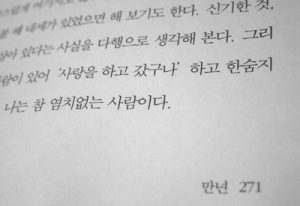 때 내세가 있었으면 해 보기도 한다. 신기한 것,
있다는 사실을 다행으로 생각해 본다. 그리
있어 '사랑을 하고 갔구나' 하고 한숨지
나는 참 염치없는 사람이다.
만년 271